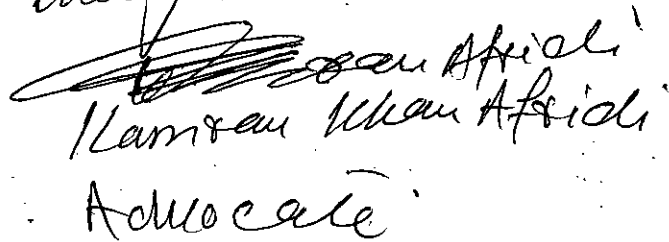 Afridi
Kamran Khan Afridi
Advocate